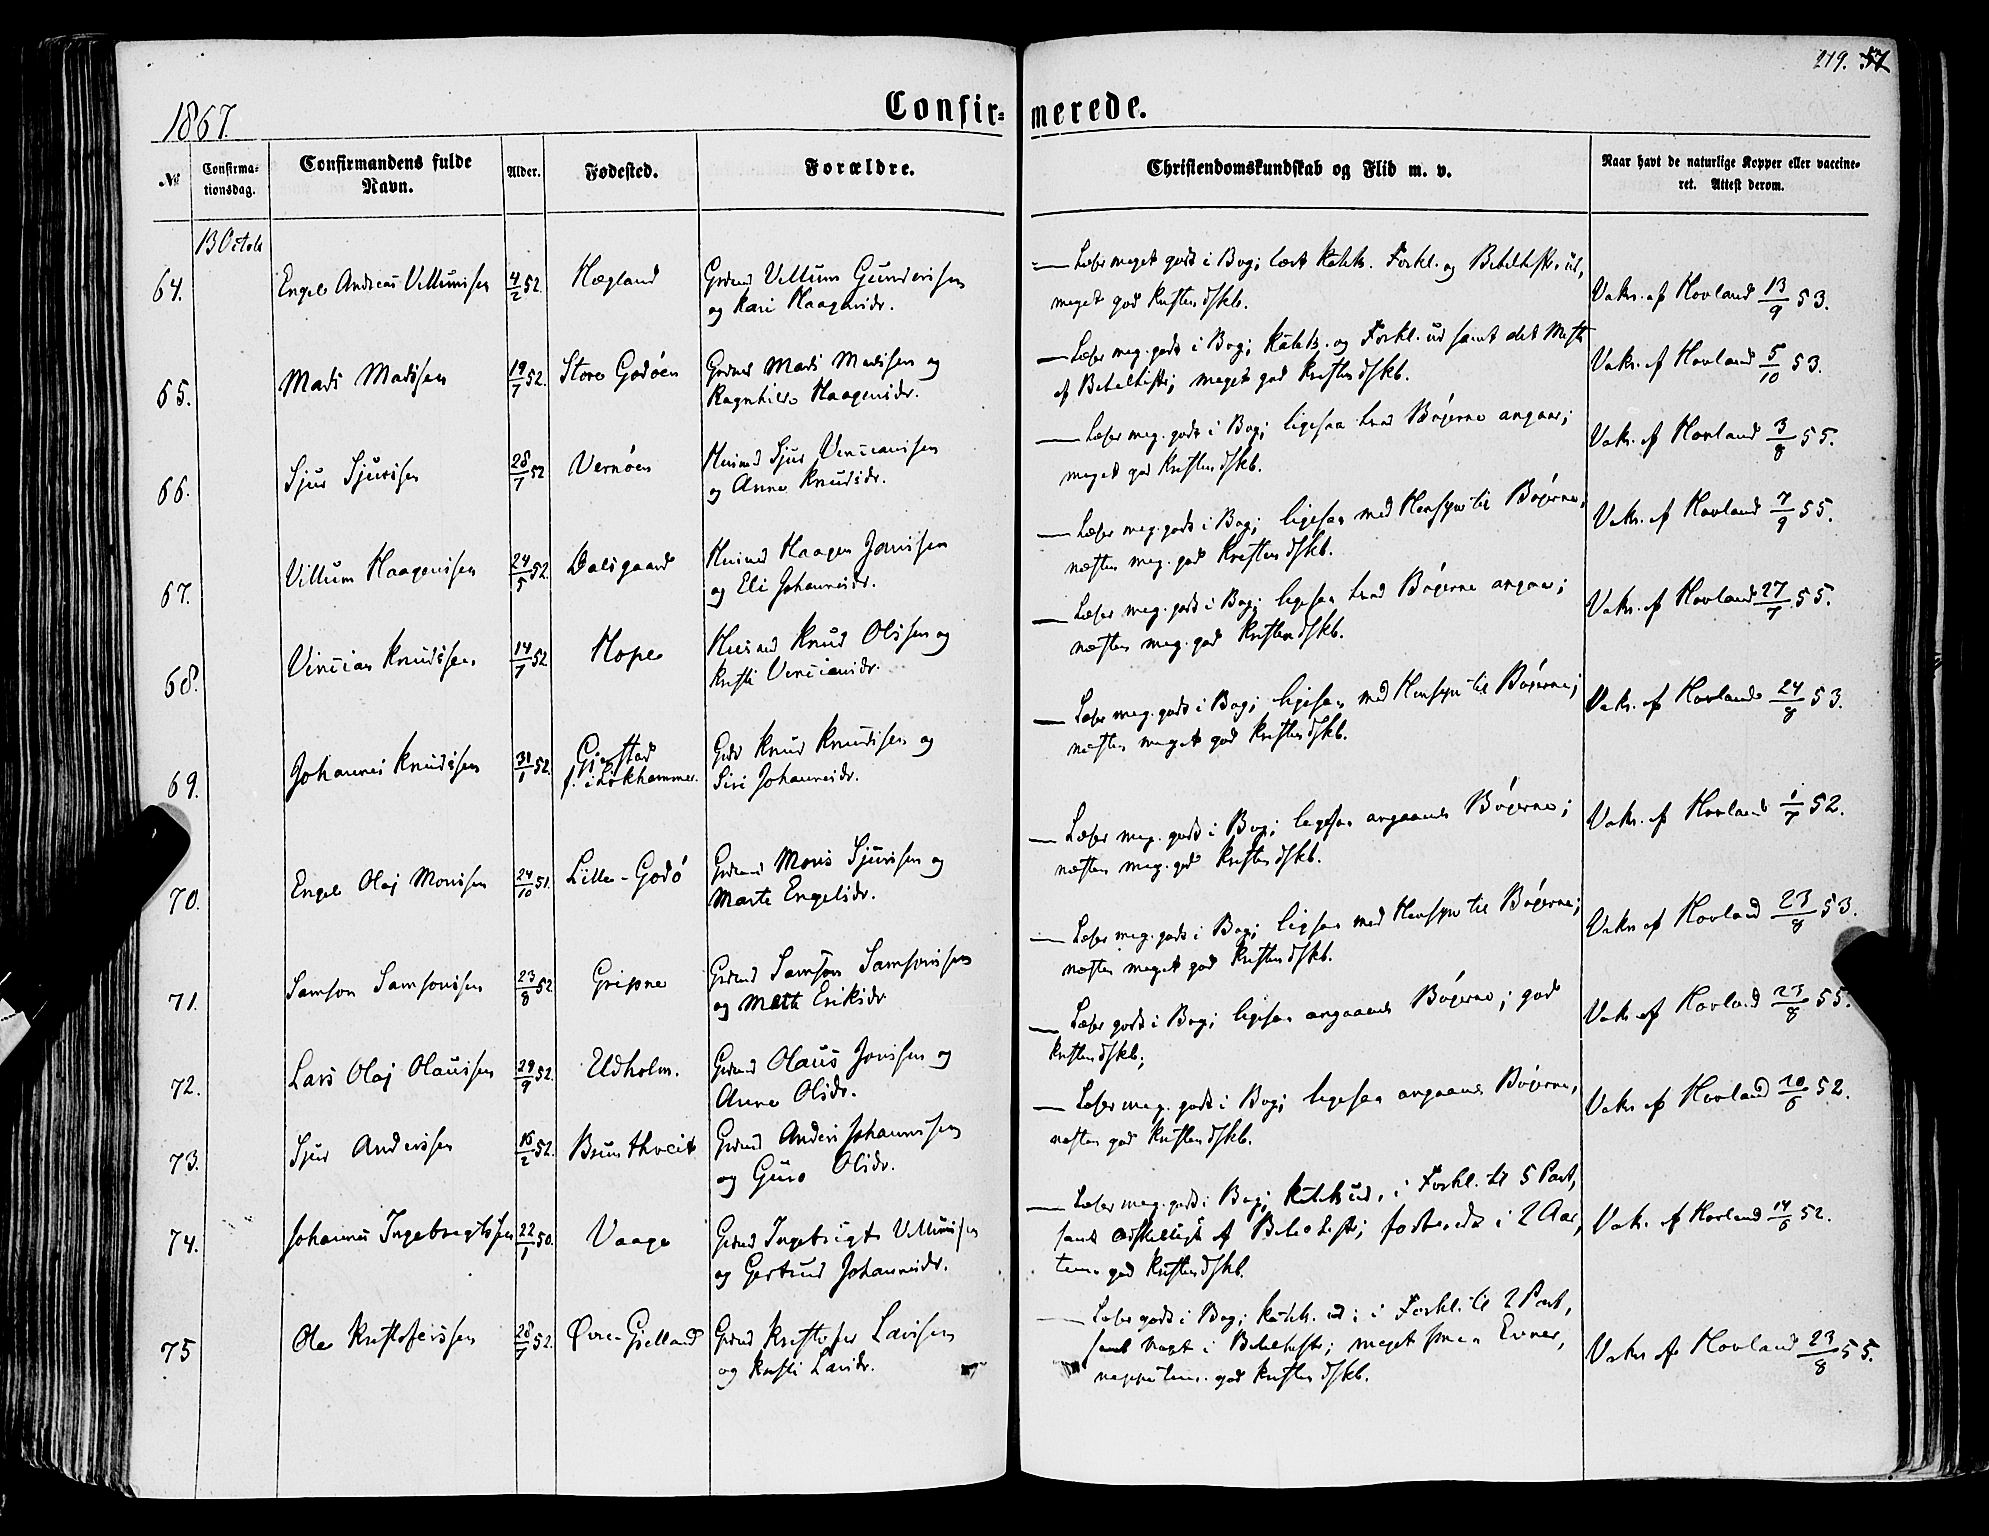 219. 57
1867.
Confir= merede.
№
Confirma-
tionsdag.
Confirmandens fulde
Navn.
Alder.
Fødested.
Forældre.
Christendomskundskab og Flid m. v.
Naar havt de naturlige Kopper eller vaccine-
ret. Attest derom.
13 Octob
64. Engel Andreas Villumssen 4/2 52. Hægland Grdmd Villum Gundersen
og Kari Haagensdr.
— Læser meget godt i Bog; lært Katek. Forkl. og Bibelhistr. ud,
meget god Kristendskb.
Vakn. af Hovland 13/9 53.
65. Mads Madssen 19/7 52. Store Godøen Grdmd Mads Madssen og
Ragnhild Haagensdr.
— Læser meg. godt i Bog; Katek. og Forkl. ud samt det Meste
af Bibelhistr; meget god Kristendskb.
Vakn. af Hovland 5/10 53.
66. Sjur Sjurssen 28/7 52 Vernøen Husmd Sjur Vincianssen
og Anne Knudsdr.
— Læser meg. godt i Bog; ligesaa hvad Bøgerne angaar;
meget god Kristendskb.
Vakn. af Hovland 3/8 55.
67. Villum Haagenssen 24/5 52. Dalsgaard Husmd Haagen Janssen
og Eli Johannesdr.
— Læser meg. godt i Bog; ligesaa med Hensyn til Bøgerne;
næsten meg. god Kristendskb.
Vakn. af Hovland 7/9 55.
68. Vincian Knudssen 14/7 52 Hope Husmd Knud Olssen og
Kristi Vinciansdr.
— Læser meg. godt i Bog; ligesaa hvad Bøgerne angaar;
næsten meg. god Kristendskb.
Vakn. af Hovland 27/7 55.
69. Johannes Knudssen 31/1 52. Gjerstad
f. i Løkhammer. Grdb Knud Knudssen og
Siri Johannesdr.
— Læser meg. godt i Bog; ligesaa med Hensyn til Bøgerne;
næsten meget god Kristendskb.
Vakn. af Hovland 24/8 53.
70. Engel Olaj Monssen 24/10 51. Lille-Godø Grdmd Mons Sjurssen og
Marte Engelsdr.
— Læser meg. godt i Bog; ligesaa angaaende Bøgerne;
næsten meg. god Kristendskb.
Vakn. af Hovland 1/7 52.
71. Samson Samsonssen 23/8 52 Gripne Grdmd Samson Samsonssen
og Mette Eriksdr
— Læser meg. godt i Bog; ligesaa med Hensyn til Bøgerne;
næsten meget god Kristendskb.
Vakn af Hovland 23/8 53.
72. Lars Olaj Olaussen 29/9 52. Udholm. Grdmd Olaus Jonssen og
Anne Olsdr.
— Læser godt i Bog; ligesaa angaaende Bøgerne; god
Kristendskb;
Vakn af Hovland 23/8 55.
73. Sjur Anderssen 16/2 52. Brunthveit Grdmd Anders Johannssen
og Guro Olsdr.
— Læser meg. godt i Bog; ligesaa angaaende Bøgerne,
næsten god Kristendskb.
Vakn af Hovland 10/6 52.
74. Johannes Ingebrigtssen 22/1 50. Vaage Grdmd Ingebrigt Villumssen
og Gertrud Johannesdr.
— Læser meg. godt i Bog; Katek ud, i Forkl. til 5 Part,
samt Adskilligt af Bibelhistr; forberedt i 2 Aar,
tem. god Kristendskb.
Vakn. af Hovland 14/6 52.
75 Ole Kristoferssen 28/7 52. Øvre-Gjelland Grdmd Kristofer Larssen
og Kristi Larsdr.
— Læser godt i Bog; Katek. ud; i Forkl. til 2 Part,
samt Noget i Bibelhistr; meget smaa Evner,
neppe tem. god Kristendskb.
Vakn af Hovland 23/8 55.